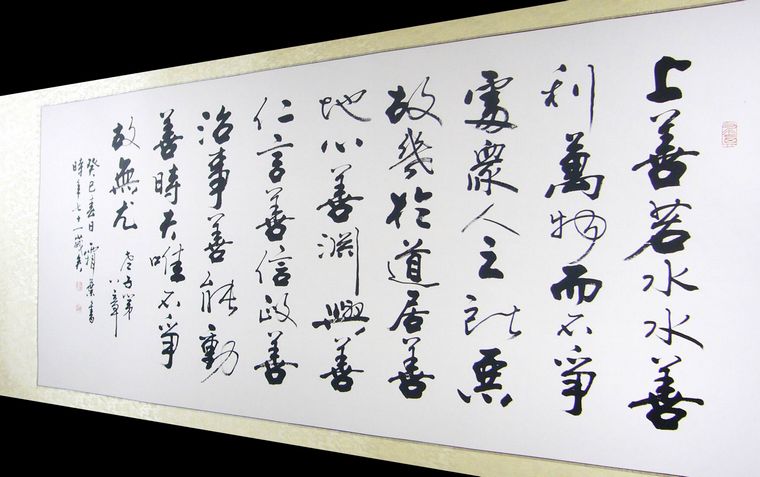 上善若水水善
利萬物而不爭
處衆人之所惡
故幾於道居善
地心善淵與善
仁言善信政善
治事善能動
善時夫唯不爭
故無尤
老子第
八章
癸巳春日霜葉書
時年七十一歲